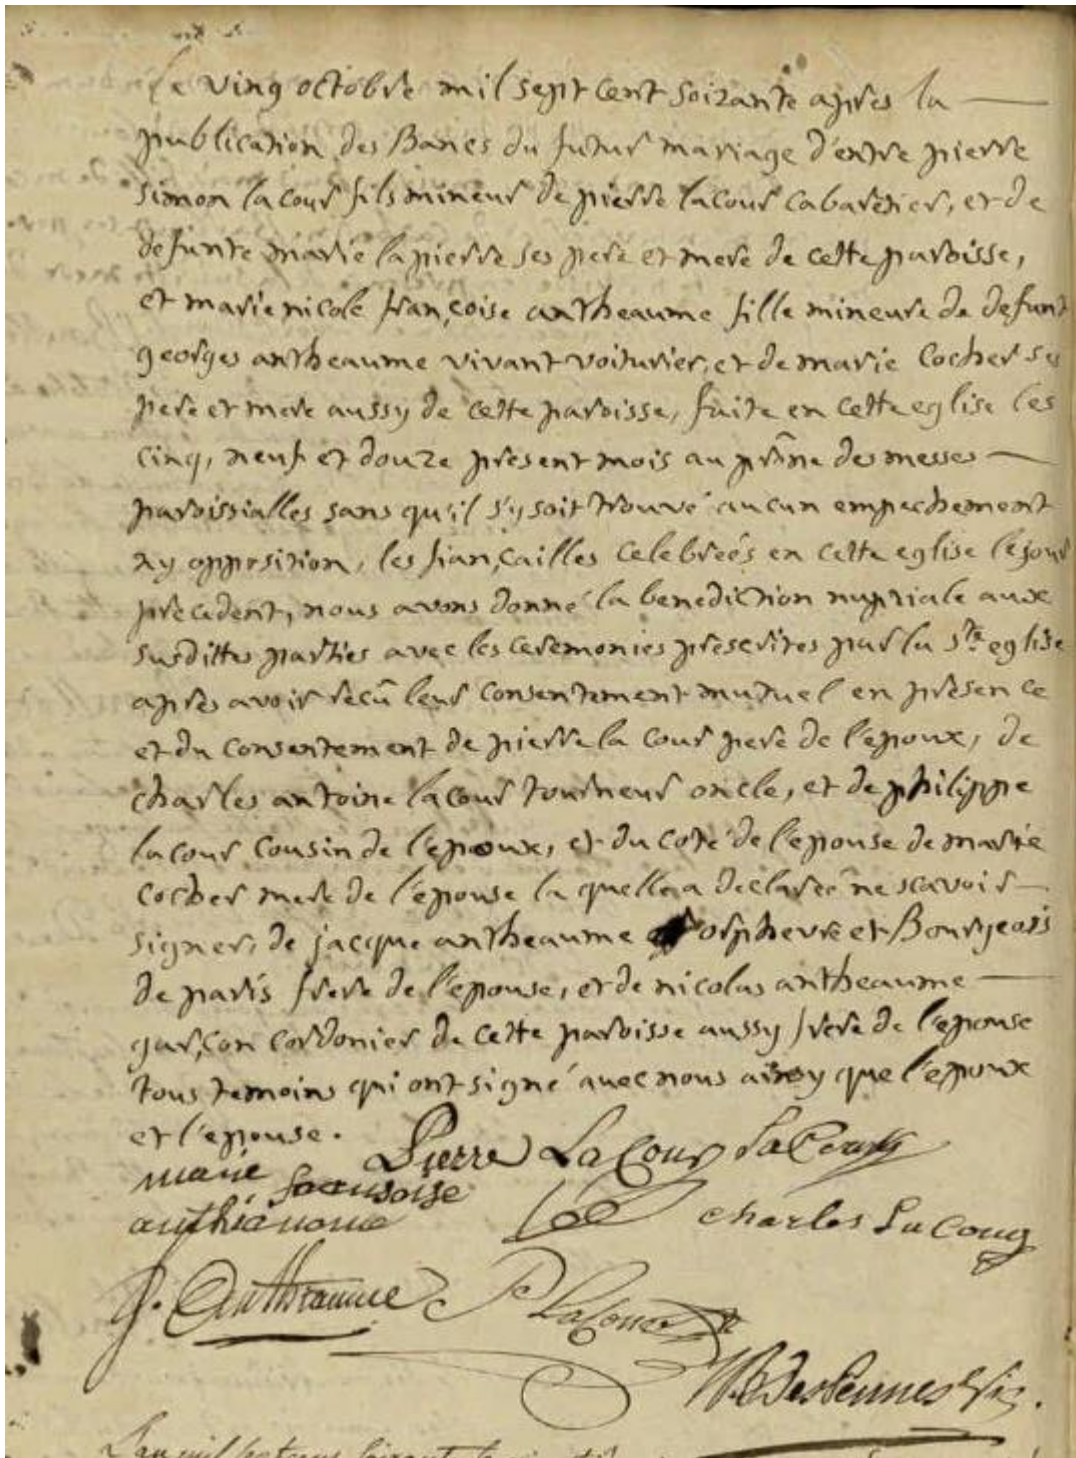 Le ving octobre mil sept cent soixante apres la
publication des Bancs du futur mariage d'entre pierre
simon lacour fils mineur de pierre lacour cabaretier, et de
defunte marie lapierre ses pere et mere de cette paroisse,
et marie nicole françoise antheaume fille mineure de defunt
georges antheaume vivant voiturier, et de marie Cocher ses
pere et mere aussy de cette paroisse, faite en cette eglise les
cinq, neuf et douze present mois au prône des messes
paroissialles sans qu'il s'y soit trouvé aucun empechement
ny opposition, les fiançailles celebreés en cette eglise le jour
precedent, nous avons donné la benediction nuptiale aux
susdittes parties avec les ceremonies prescrites par la Ste eglise
apres avoir recû leur consentement mutuel en presence
et du consentement de pierre la cour pere de l'epoux, de
charles antoine lacour tourneur oncle, et de philippe
lacour cousin de l'epoux, et du coté de l'epouse de marie
cocher mere de l'epouse la quelle a declareé ne scavoir
signer, de jacque antheaume orphevre et Bourgeois
de paris frere de l'epouse, et de nicolas antheaume
garçon cordonier de cette paroisse aussy frere de l'epouse
tous temoins qui ont signé avec nous ainsy que l'epoux
et l'epouse.
Pierre La Cour LaCour
marie fransoise
anthiaume
charles La Cour
J. Antheaume P LaCour